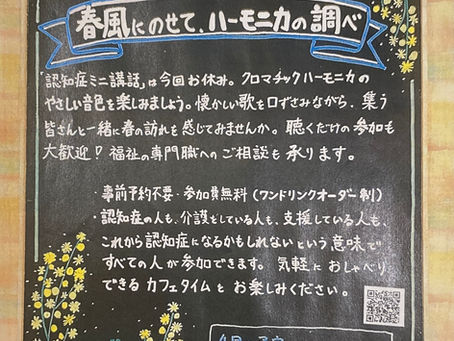 春風にのせて、ハーモニカの調べ
「認知症ミニ講話」は今回お休み。クロマチックハーモニカの
やさしい音色を楽しみましょう。懐かしい歌を口ずさみながら、集う
皆さんと一緒に春の訪れを感じてみませんか。聴くだけの参加も
大歓迎！福祉の専門職へのご相談も承ります。
・事前予約不要・参加費無料(ワンドリンクオーダー制)
・認知症の人も、介護をしている人も、支援している人も、
これから認知症になるかもしれないという意味で
すべての人が参加できます。気軽におしゃべり
できるカフェタイムをお楽しみください。